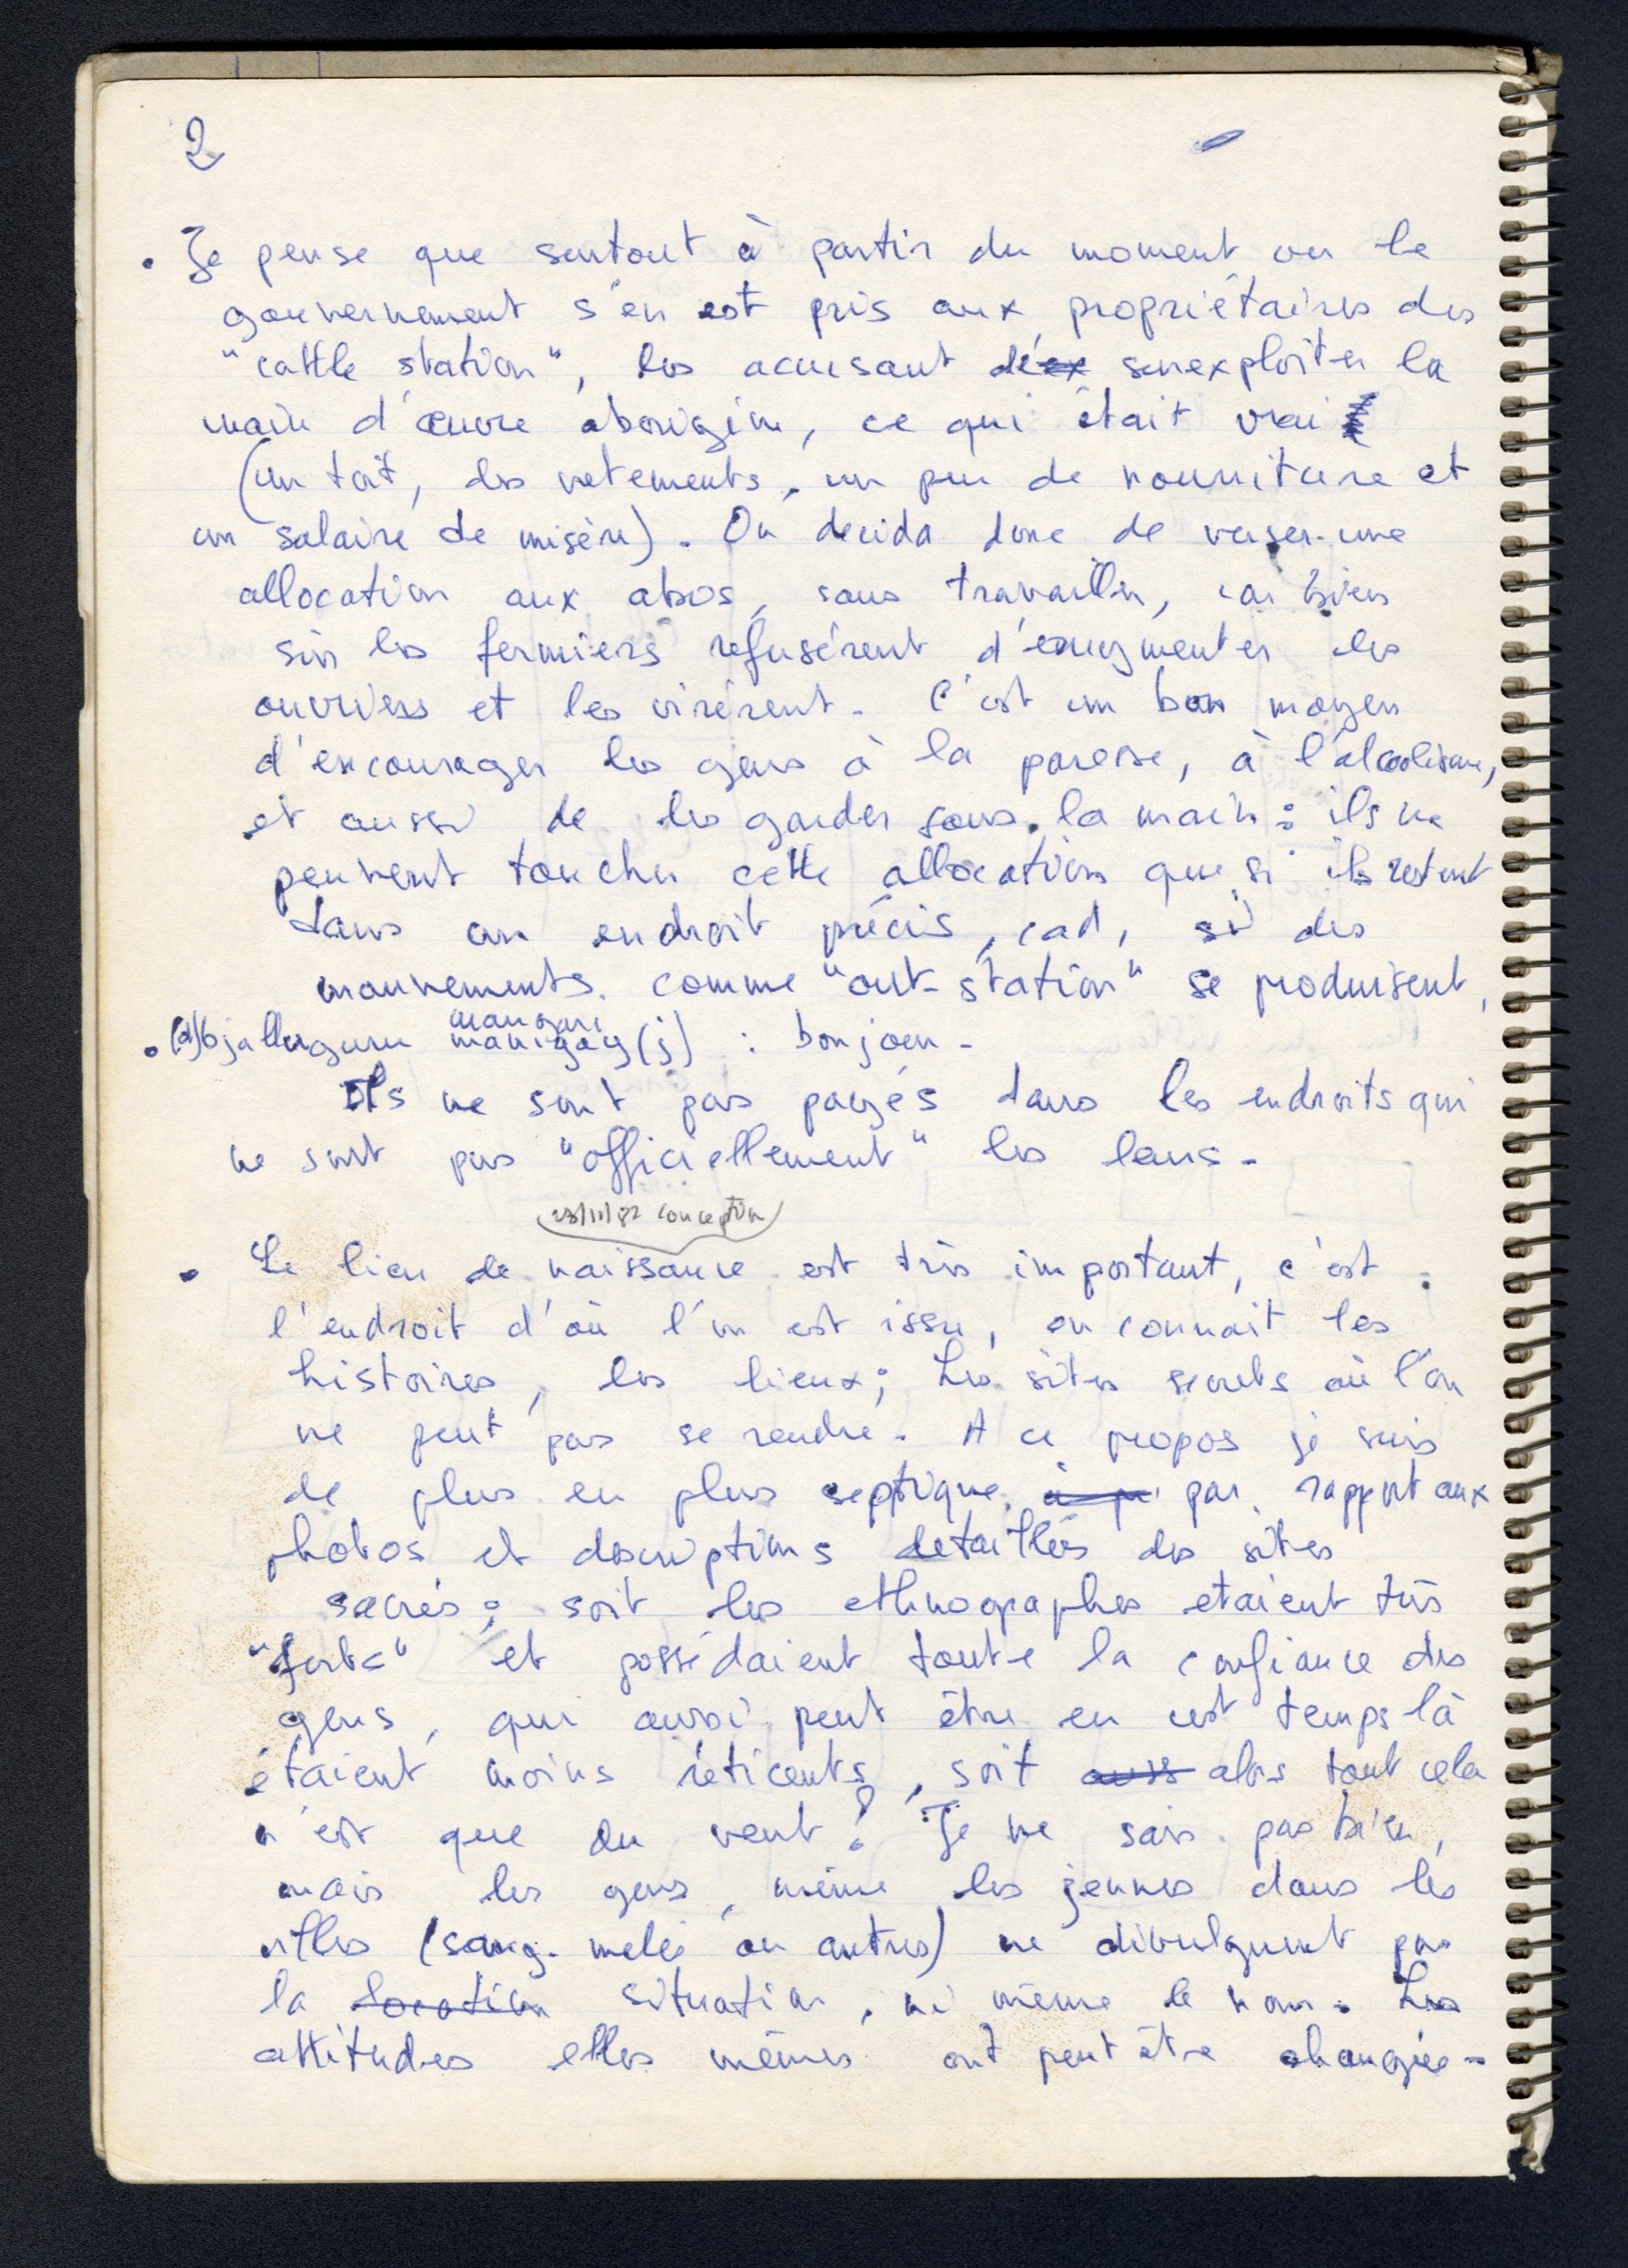 2
. Je pense que surtout à partir du moment ou le
gouvernement s'en est pris aux propriétaires des
"cattle station", les accusant d'ex surexploiter la
main d'œuvre aborigène, ce qui était vrai
(un toit, des vetements, un peu de nourriture et
un salaire de misère). On decida donc de verser une
allocation aux abos, sans travailler, car bien
sûr les fermiers refusérent d'augmenter les
ouvriers et les virérent. C'est un bon moyen
d'encourager les gens à la paresse, à l'alcoolisme,
et aussi de les garder sous la main : ils ne
peuvent toucher cette allocation que si ils restent
dans un endroit précis, cad, si des
mouvements comme "out-station" se produisent,
mangari
. : bonjour -
Ils ne sont pas payés dans les endroits qui
ne sont pas "officiellement" les leurs -
23/11/82 conception
. Le lieu de naissance est très important, c'est
l'endroit d'où l'on est issu, on connait les
histoires, les lieux; Les sites secrets où l'on
ne peut pas se rendre. A ce propos je suis
de plus en plus septique par rapport aux
photos et descriptions detaillées des sites
sacrés ; soit les ethnographes etaient très
"forts" et possédaient toute la confiance des
gens, qui aussi peut être en cet temps là
étaient moins réticents, soit auss alors tout cela
n'est que du vent ? Je ne sais pas bien,
mais les gens, même les jeunes dans les
villes (sang-melée ou autres) ne divulguent pas
la location situation, ni même le nom. Les
attitudes elles mêmes ont peut être changée -